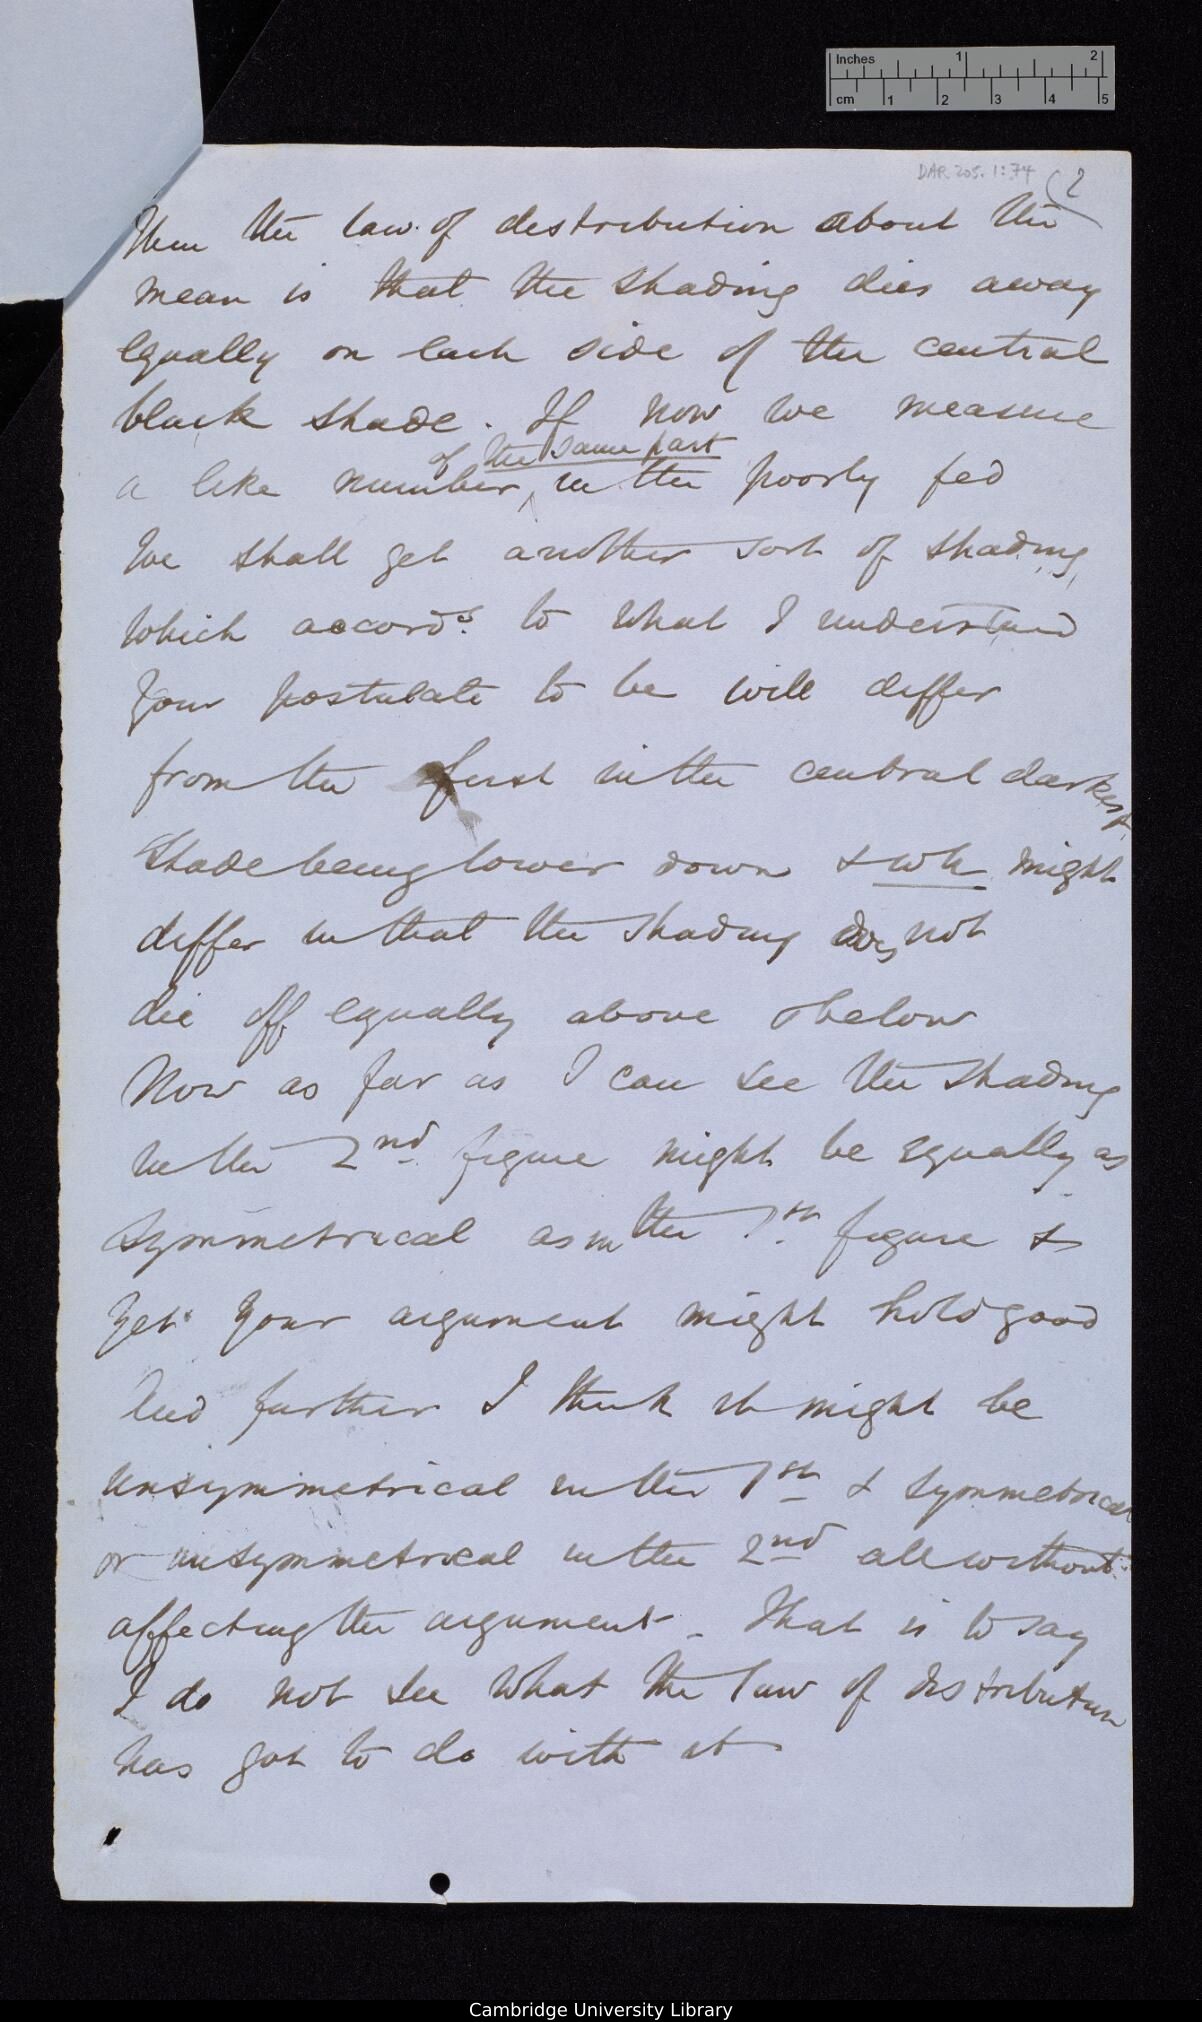 Inches 1 2
cm 1 2 3 4 5
DAR 205.1:74
(2
Then the law of distribution about the
mean is that the shading dies away
equally on each side of the central
black shade. If now we measure
of the same part
a like number in the poorly fed
we shall get another sort of shading,
which accord.g to what I understand
your postulate to be will differ
from the first in the central darkest
shade being lower down & wh might
differ in that the shading does not
die off equally above & below
Now as far as I can see the shading
in the 2nd figure might be equally as
symmetrical as in the 1st figure &
yet your argument might hold good
And further I think it might be
unsymmetrical in the 1st & symmetrical
or unsymmetrical in the 2nd all without
affecting the argument. That is to say
I do not see what the law of distribution
has got to do with it
Cambridge University Library